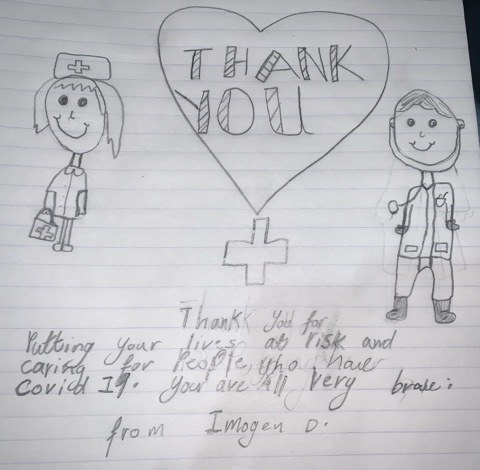 THANK
YOU
Thank you for
Putting your lives at risk and
caring for People who have
Covid 19. You are all very brave.
from Imogen D.